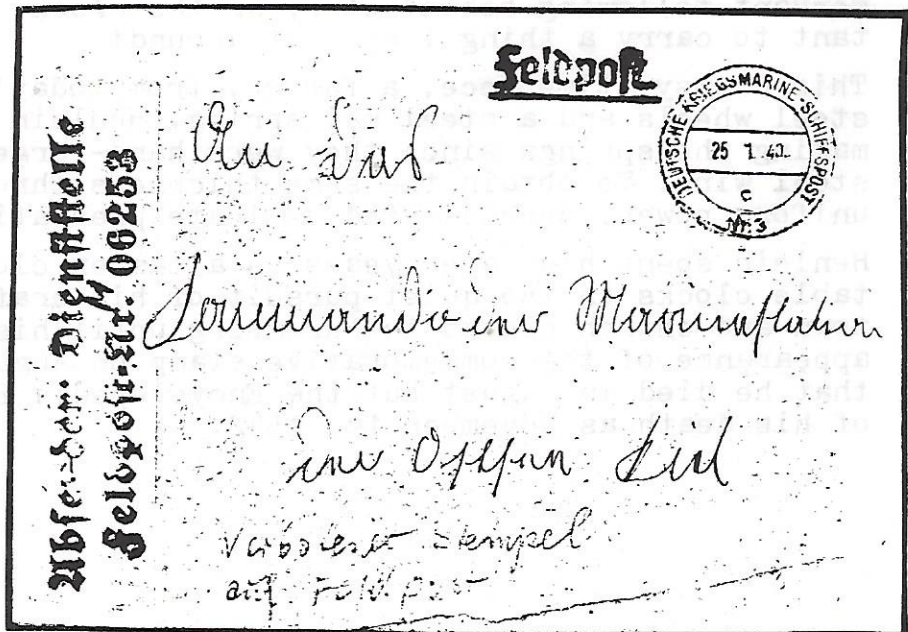 Feldpost
DEUTSCHE KRIEGSMARINE-SCHIFFSPOST
25 1 40
c
Nr. 3
Absender: Dienststelle
Feldpost-Nr. M 06253
An Das
Kommando der Marinestation
der Ostsee Kiel
Verbotener Stempel
auf Feldpost